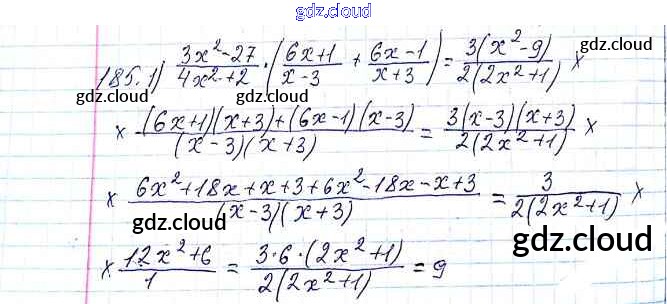 gdz.cloud
185.1) (3x²-27)/(4x²+2) · ((6x+1)/(x-3) + (6x-1)/(x+3)) = 3(x²-9)/(2(2x²+1)) ×
gdz.cloud gdz.cloud gdz.cloud
× ((6x+1)(x+3)+(6x-1)(x-3))/((x-3)(x+3)) = 3(x-3)(x+3)/(2(2x²+1)) ×
gdz.cloud gdz.cloud
× (6x²+18x+x+3+6x²-18x-x+3)/((x-3)(x+3)) = 3/(2(2x²+1)) ×
gdz.cloud gdz.cloud
× (12x²+6)/1 = 3·6·(2x²+1)/(2(2x²+1)) = 9
gdz.cloud